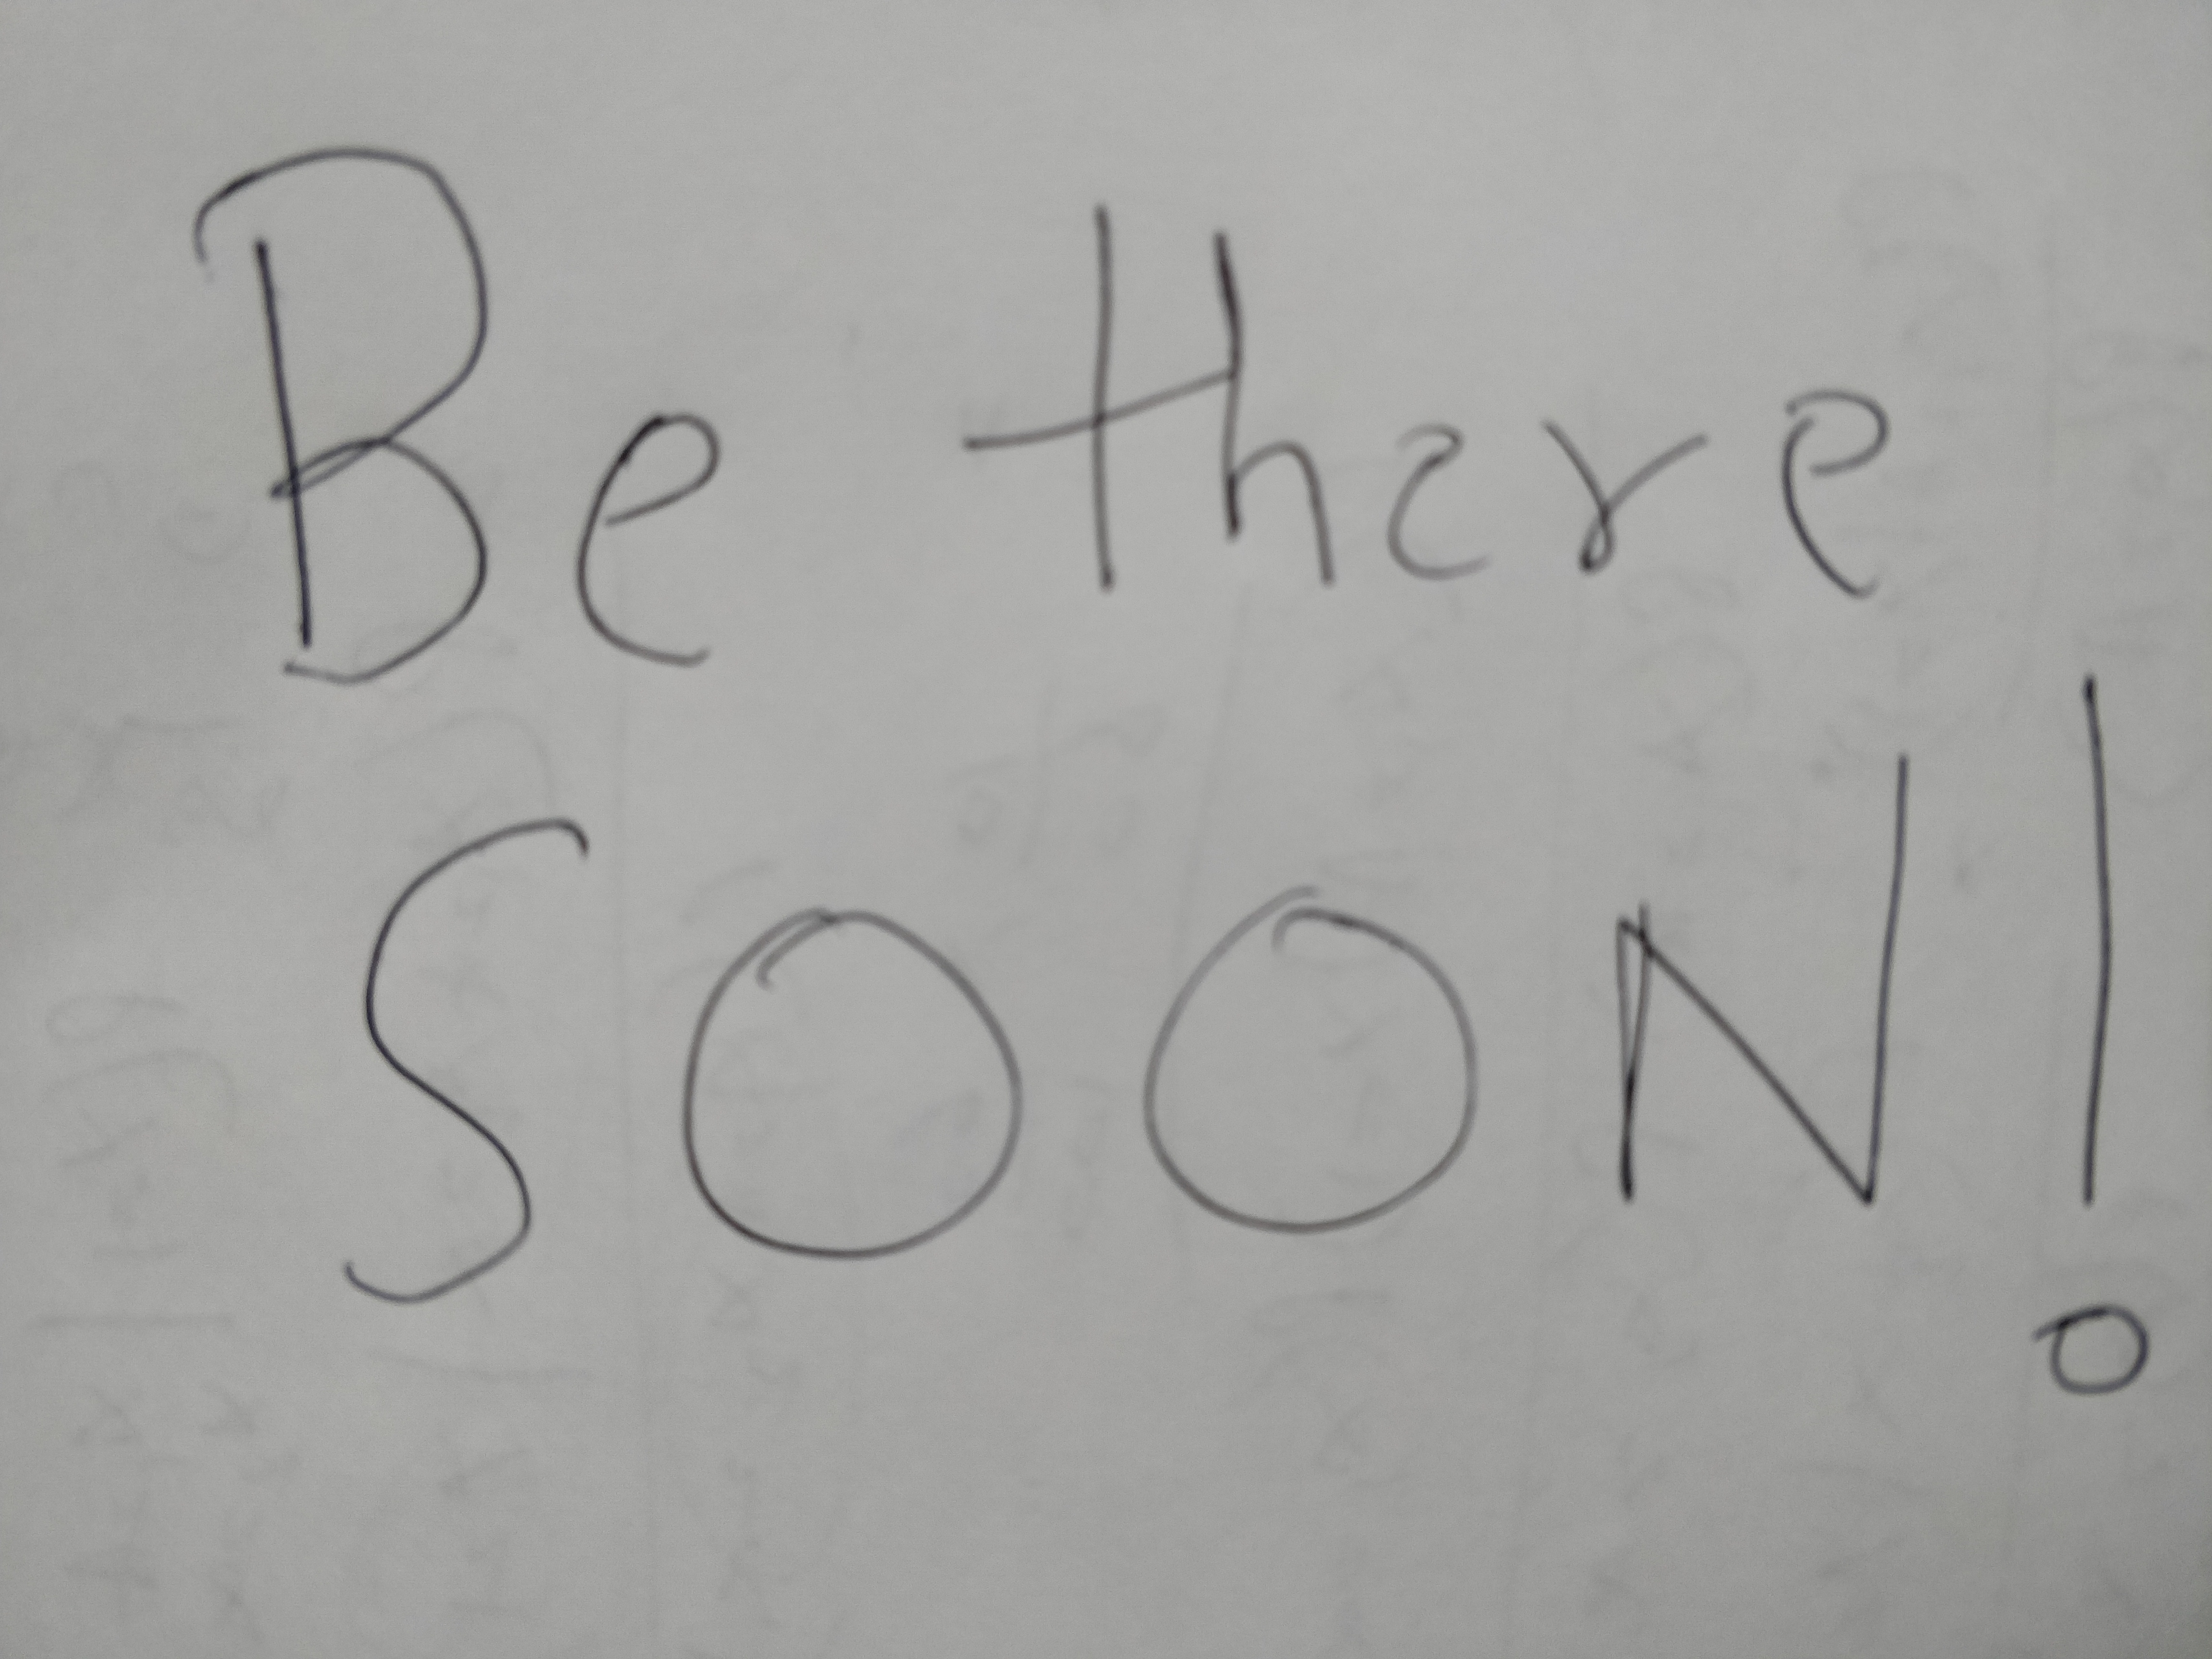 Be there
SOON!